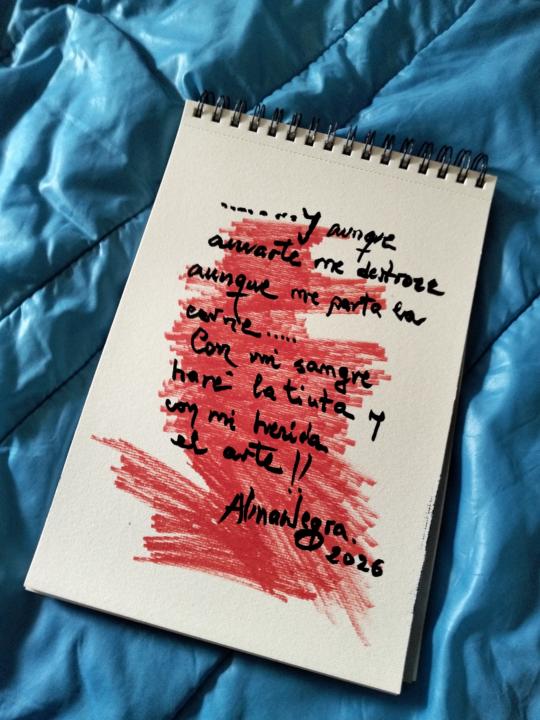 ........Y aunque
amarte me destroze
aunque me parta la
carne.....
Con mi sangre
haré la tinta y
con mi herida
el arte!!
AlmaNegra.
2026